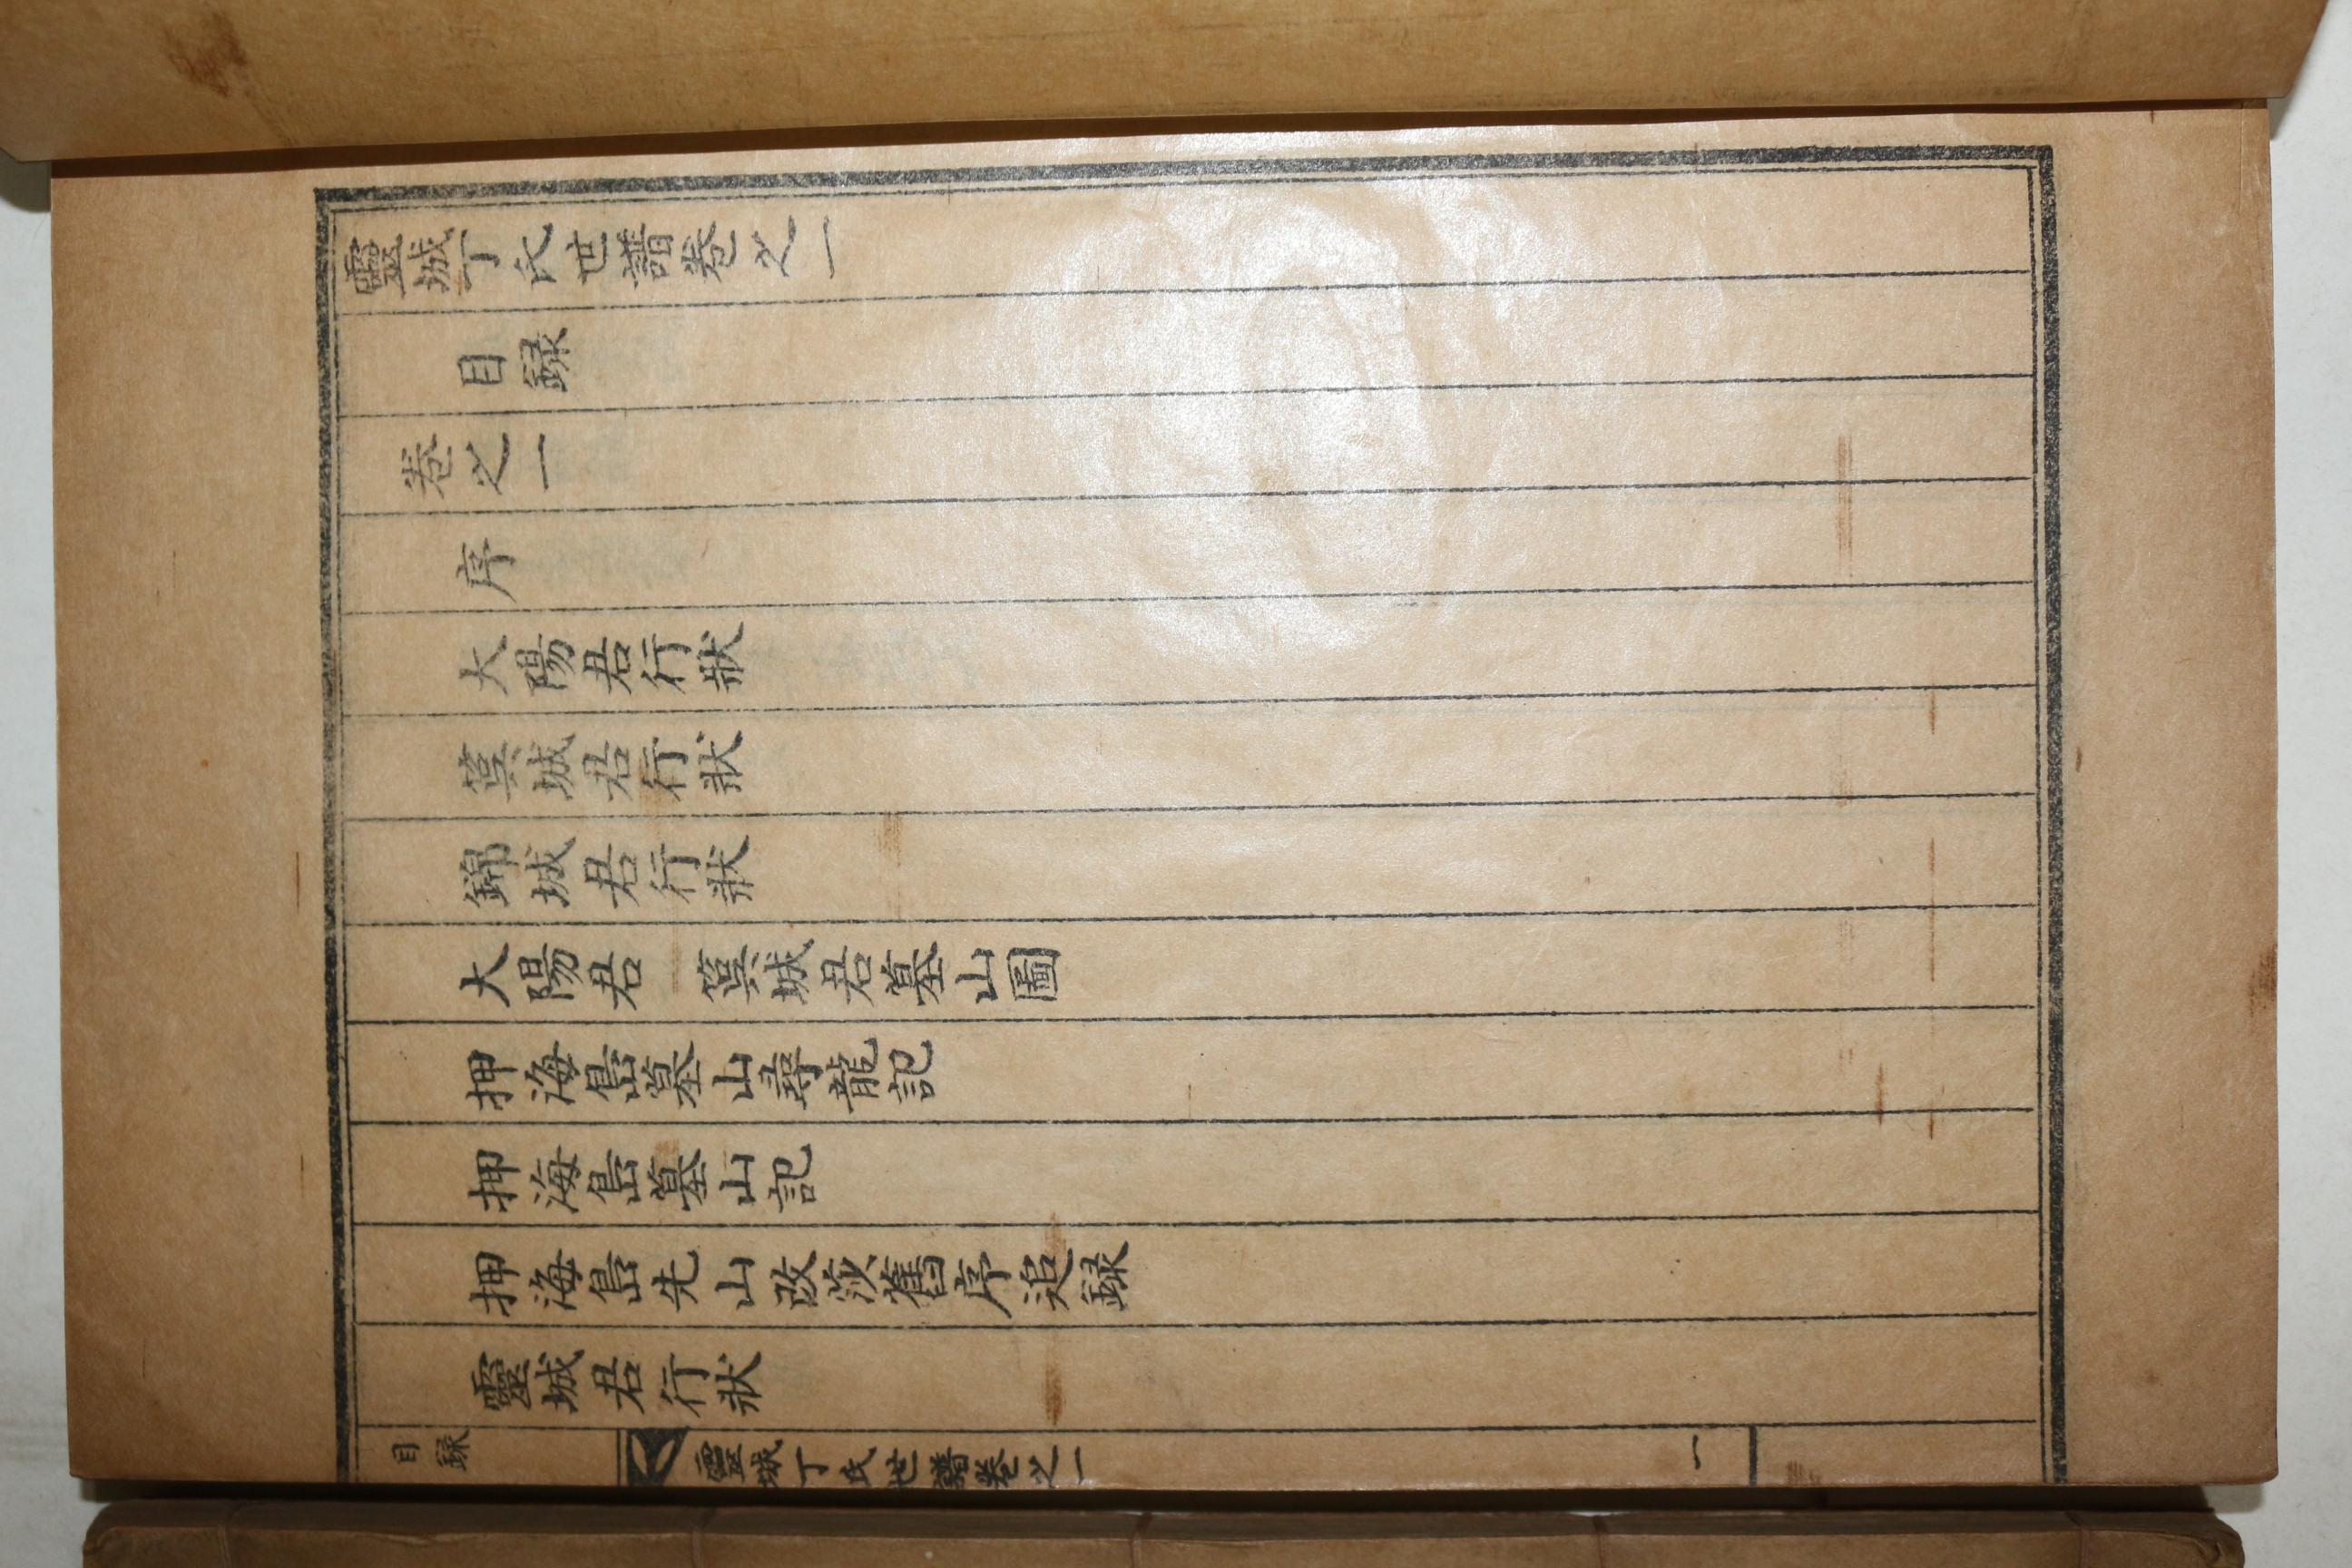 靈城丁氏世譜卷之一
目録
卷之一
序
大陽君行狀
筽城君行狀
錦城君行狀
大陽君 筽城君墓山圖
押海島墓山尋龍記
押海島墓山記
押海島先山改莎舊序追録
靈城君行狀
目録 靈城丁氏世譜卷之一 一